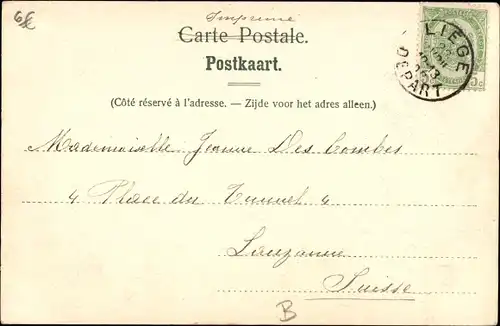 6€
Imprimé
Carte Postale.
Postkaart.
(Côté réservé à l'adresse. — Zijde voor het adres alleen.)
LIÈGE
DÉPART
5c
Mademoiselle Jeanne Des Combes
4 Place du Tunnel 4
Lausanne
Suisse
B